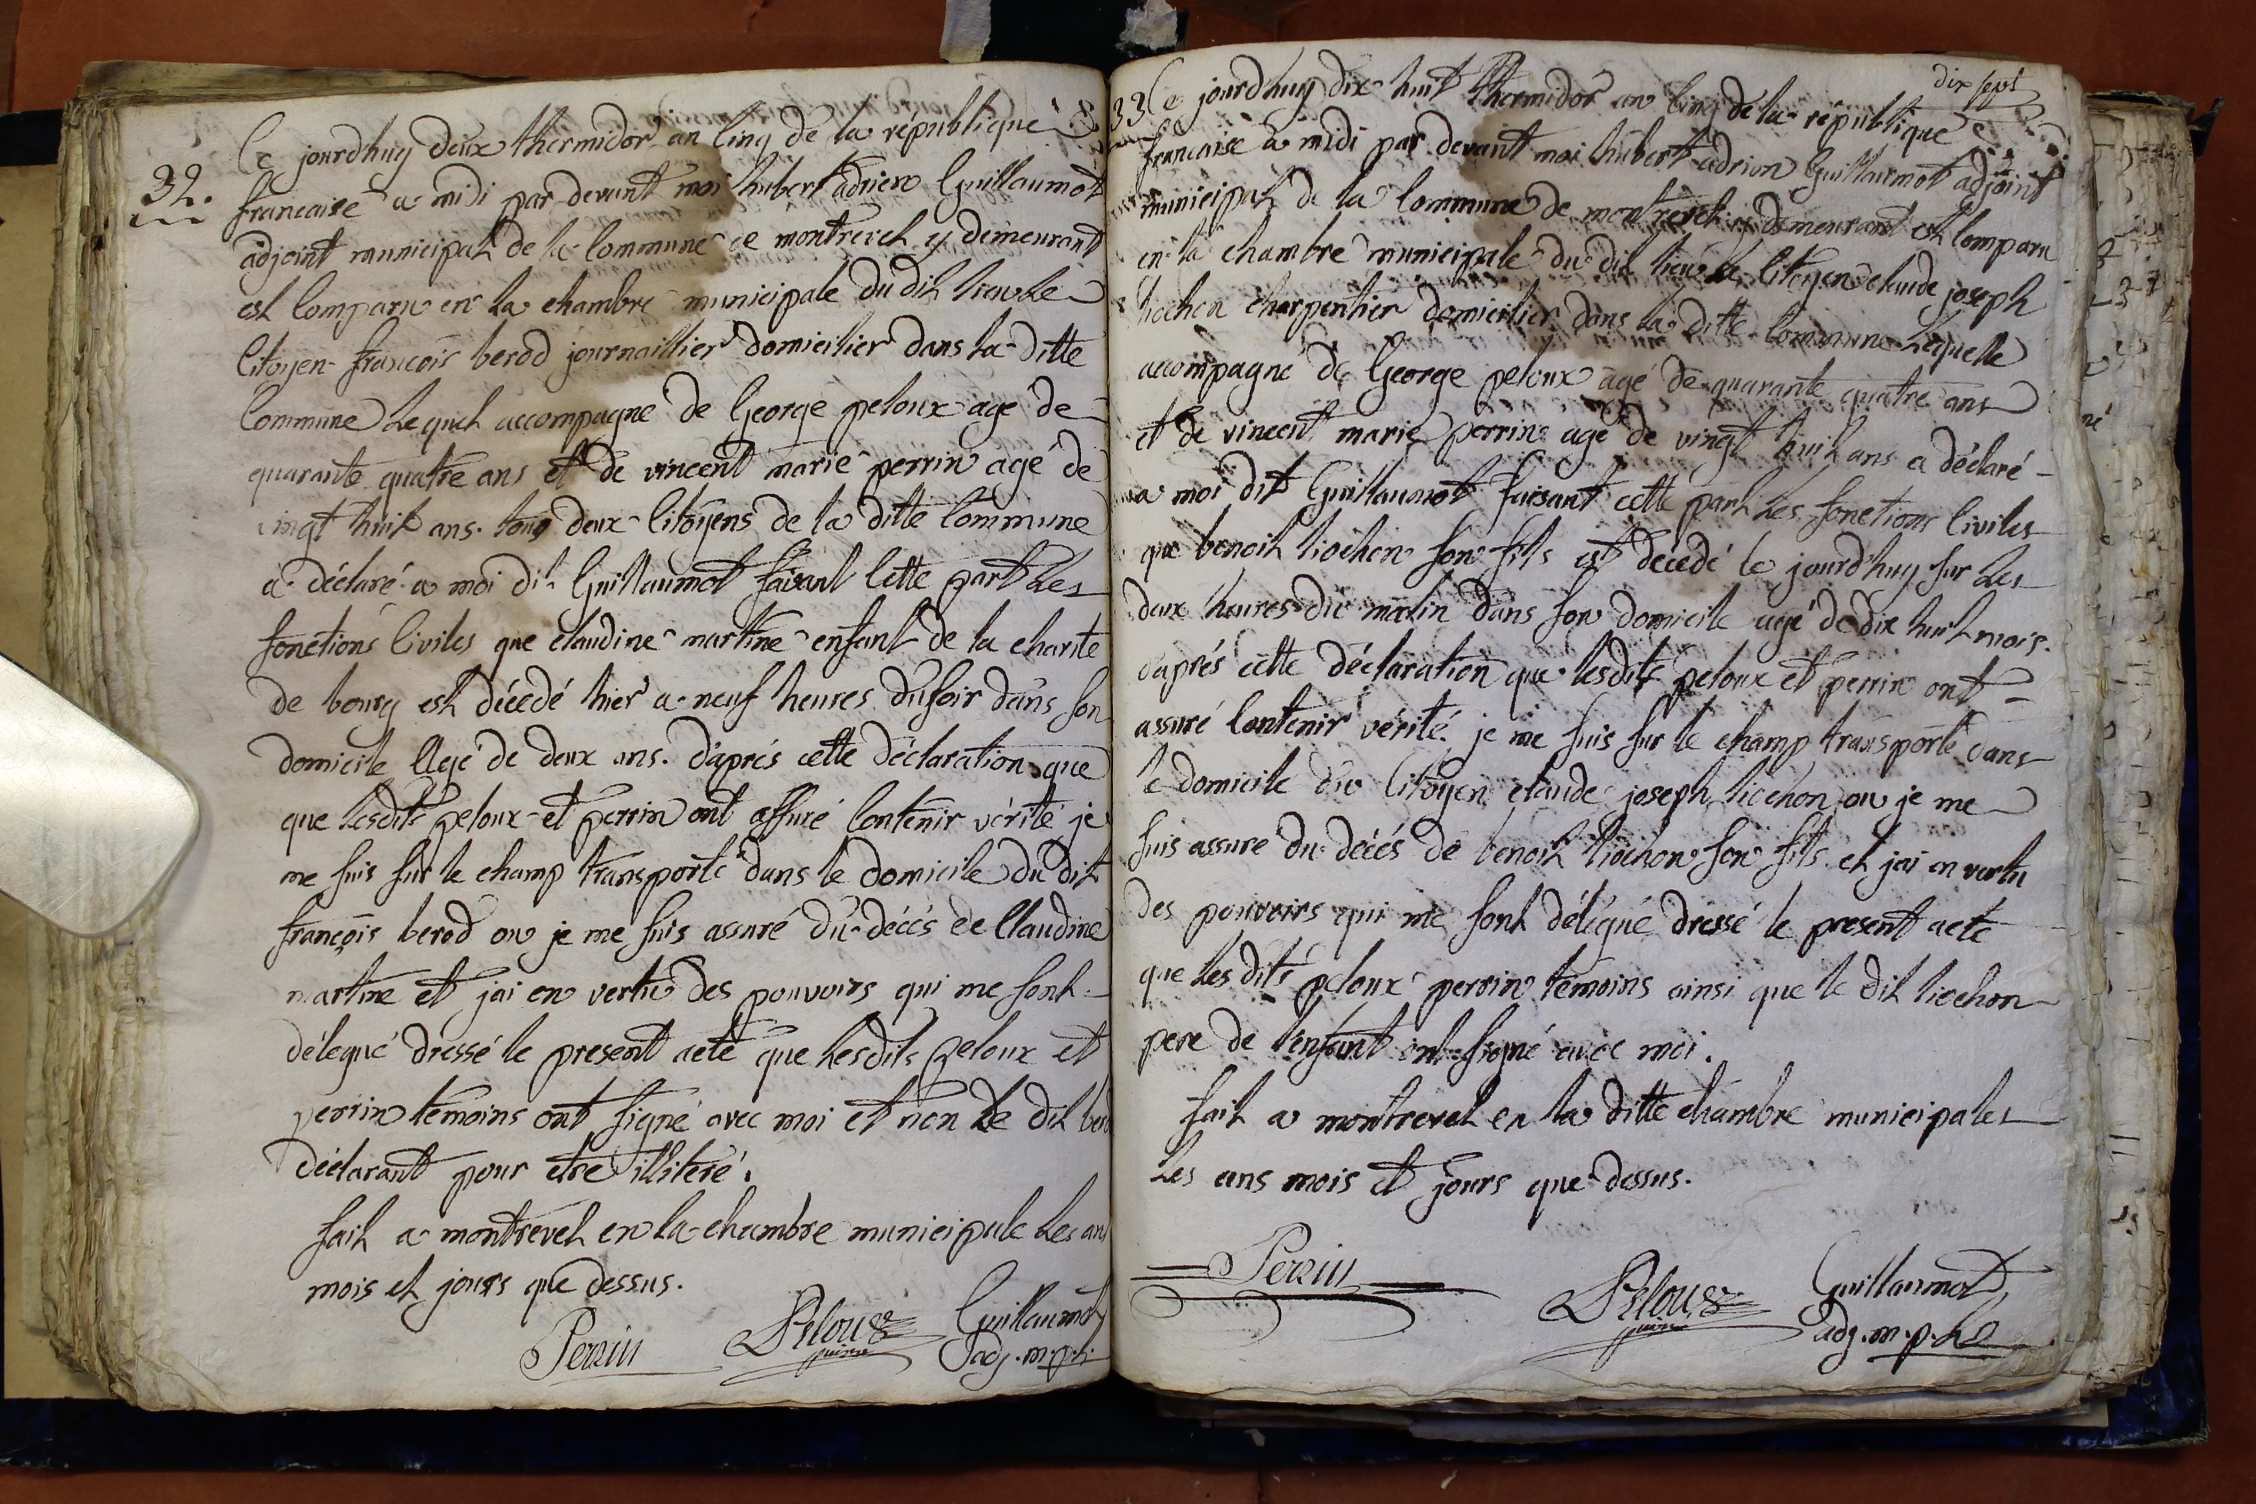 32.
Ce jourdhuy deux thermidor an cinq de la république
francaise a midi par devant moi hubert adrien Guillaumot
adjoint municipal de la Commune de montrevel y demeurant
est Comparu en la chambre municipale du dit lieu le
Citoyen francois berod journaillier domicilier dans la ditte
Commune Lequel accompagne de George peloux age de
quarante quatre ans et de vincent marie perrin agé de
vingt huit ans. tous deux Citoyens de la ditte Commune
a déclaré a moi dit Guillaumot faisant Cette part Les
fonctions Civiles que claudine martine enfant de la charite
de bourg est décedé hier a neuf heures du soir dans son
domicile Agé de deux ans. d'aprés cette déclaration que
que lesdits peloux et perrin ont assuré Contenir vérité je
me suis sur le champ transporté dans le domicile du dit
françois berod ou je me suis assuré du décés de Claudine
martine et jai en vertu des pouvoirs qui me sont
délegué dressé le present acte que Lesdits peloux et
perrin témoins ont signé avec moi et non Le dit berod
déclarant pour etre illiteré.
fait a montrevel en la chambre municipale Les ans
mois et jours que dessus.
Perrin Peloux Guillaumot
adj. m. p. l.
dix sept
33 Ce jourdhuy dix huit thermidor an Cinq de la république
francaise a midi par devant moi hubert adrien Guillaumot adjoint
municipal de la Commune de montrevel y demeurant est Comparu
en la chambre municipale du dit lieu le Citoyen claude joseph
liochon charpentier domicilier dans la ditte Commune Lequelle
accompagné de George peloux agé de quarante quatre ans
et de vincent marie perrin agé de vingt huit ans a déclaré
a moi dit Guillaumot faisant cette part Les fonctions Civiles
que benoit liochon son fils est décedé le jourdhuy sur Les
deux heures du matin dans son domicile agé de dix huit mois.
d'aprés cette déclaration que lesdits peloux et perrin ont
assuré Contenir vérité. je me suis sur le champ transporté dans
le domicile du Citoyen claude joseph liochon ou je me
suis assure du décés de benoit liochon son fils et jai en vertu
des pouvoirs qui me sont délégué dressé le present acte
que Les dits peloux perrin témoins ainsi que le dit liochon
pere de lenfant ont signé avec moi.
fait a montrevel en la ditte chambre municipales
Les ans mois et jours que dessus.
Perrin Peloux Guillaumot
adj. m. p. l.